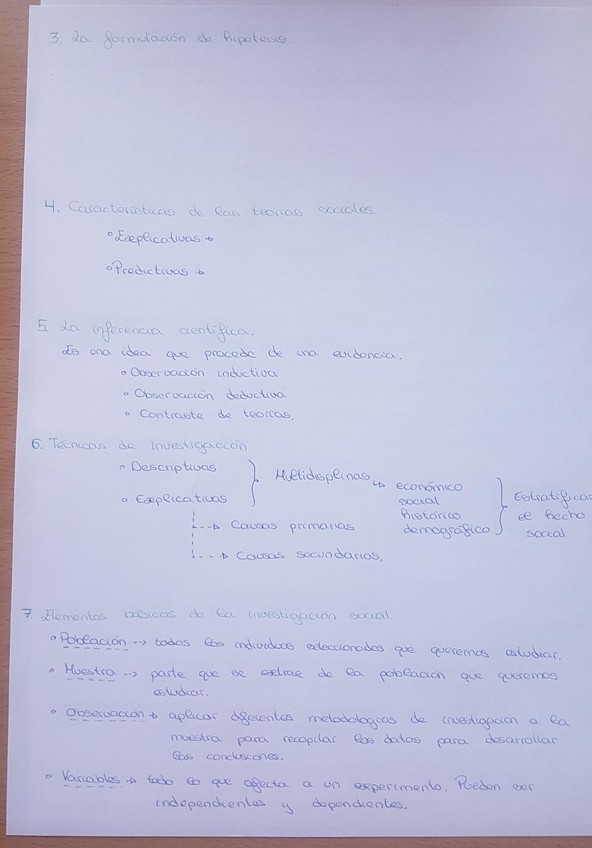 3. La formulación de hipotesis.
4. Caracteristicas de las teorias sociales.
° Explicativas →
° Predictivas →
5. La inferencia cientifica.
Es una idea que procede de una evidencia.
° Observación inductiva
° Observación deductiva
° Contraste de teorias.
6. Tecnicas de investigación
° Descriptivas
° Explicativas
Multidisplinas ↳ económico
social
histórico
demográfico
Estratificar
el hecho
social
--→ Causas primarias
--→ Causas secundarias.
7. Elementos básicos de la investigación social.
° Población → todos los individuos seleccionados que queremos estudiar.
° Muestra → parte que se extrae de la población que queremos
estudiar.
° Observación → aplicar diferentes metodologias de investigación a la
muestra para recopilar los datos para desarrollar
las conclusiones.
° Variables → todo lo que afecta a un experimento. Pueden ser
independientes y dependientes.